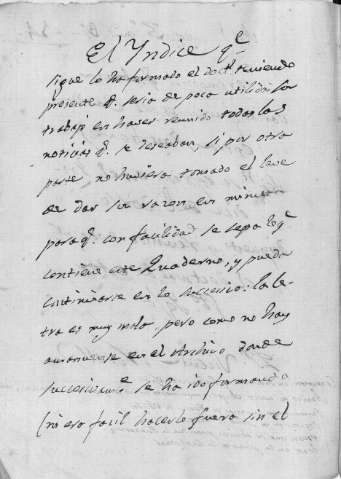 El Yndice q.e
sigue lo ha formado el Doct.l teniendo
presente q. seria de poca utilidad su
trabajo en haver reunido todas las
noticias q. se deseaban, si por otra
parte no huviera tomado el leve
de dar su razon en
para q. con facilidad se sepa lo q.e
contiene este Quaderno, y pueda
continuarse en lo subcesivo: la le-
tra es muy mala, pero como no hay
amanuense en el Archivo donde
succesivam.e se ha ido formando
(no era facil hacerlo fuera sin el